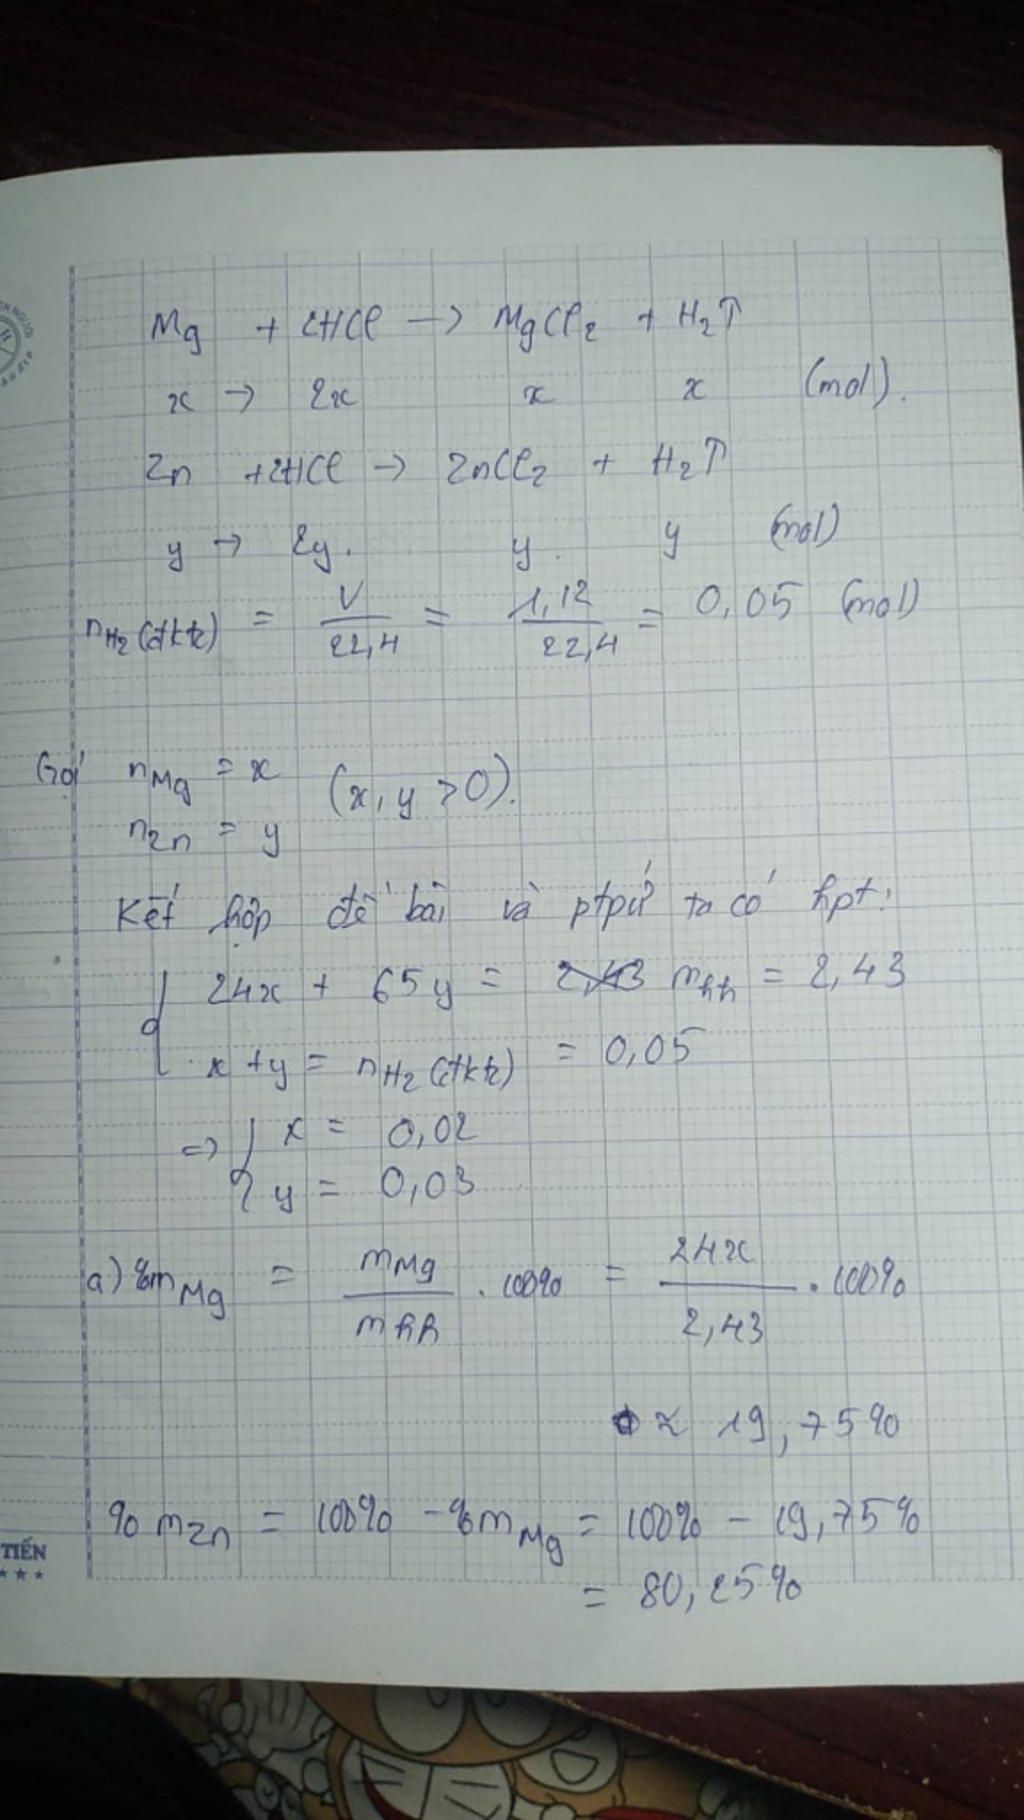 Mg + 2HCl → MgCl₂ + H₂↑
x → 2x x x (mol).
Zn +2HCl → ZnCl₂ + H₂↑
y → 2y. y. y (mol)
nH₂(đktc) = V/22,4 = 1,12/22,4 = 0,05 (mol)
Gọi nMg = x (x, y >0).
nZn = y
Kết hợp đề bài và ptpứ ta có hpt:
24x + 65y = mhh = 2,43
x +y = nH₂(đktc) = 0,05
=> { x = 0,02
y = 0,03
a) %mMg = mMg/mhh . 100% = 24x/2,43 . 100%
≈ 19,75%
%mZn = 100% - %mMg = 100% - 19,75%
= 80,25%
TIẾN